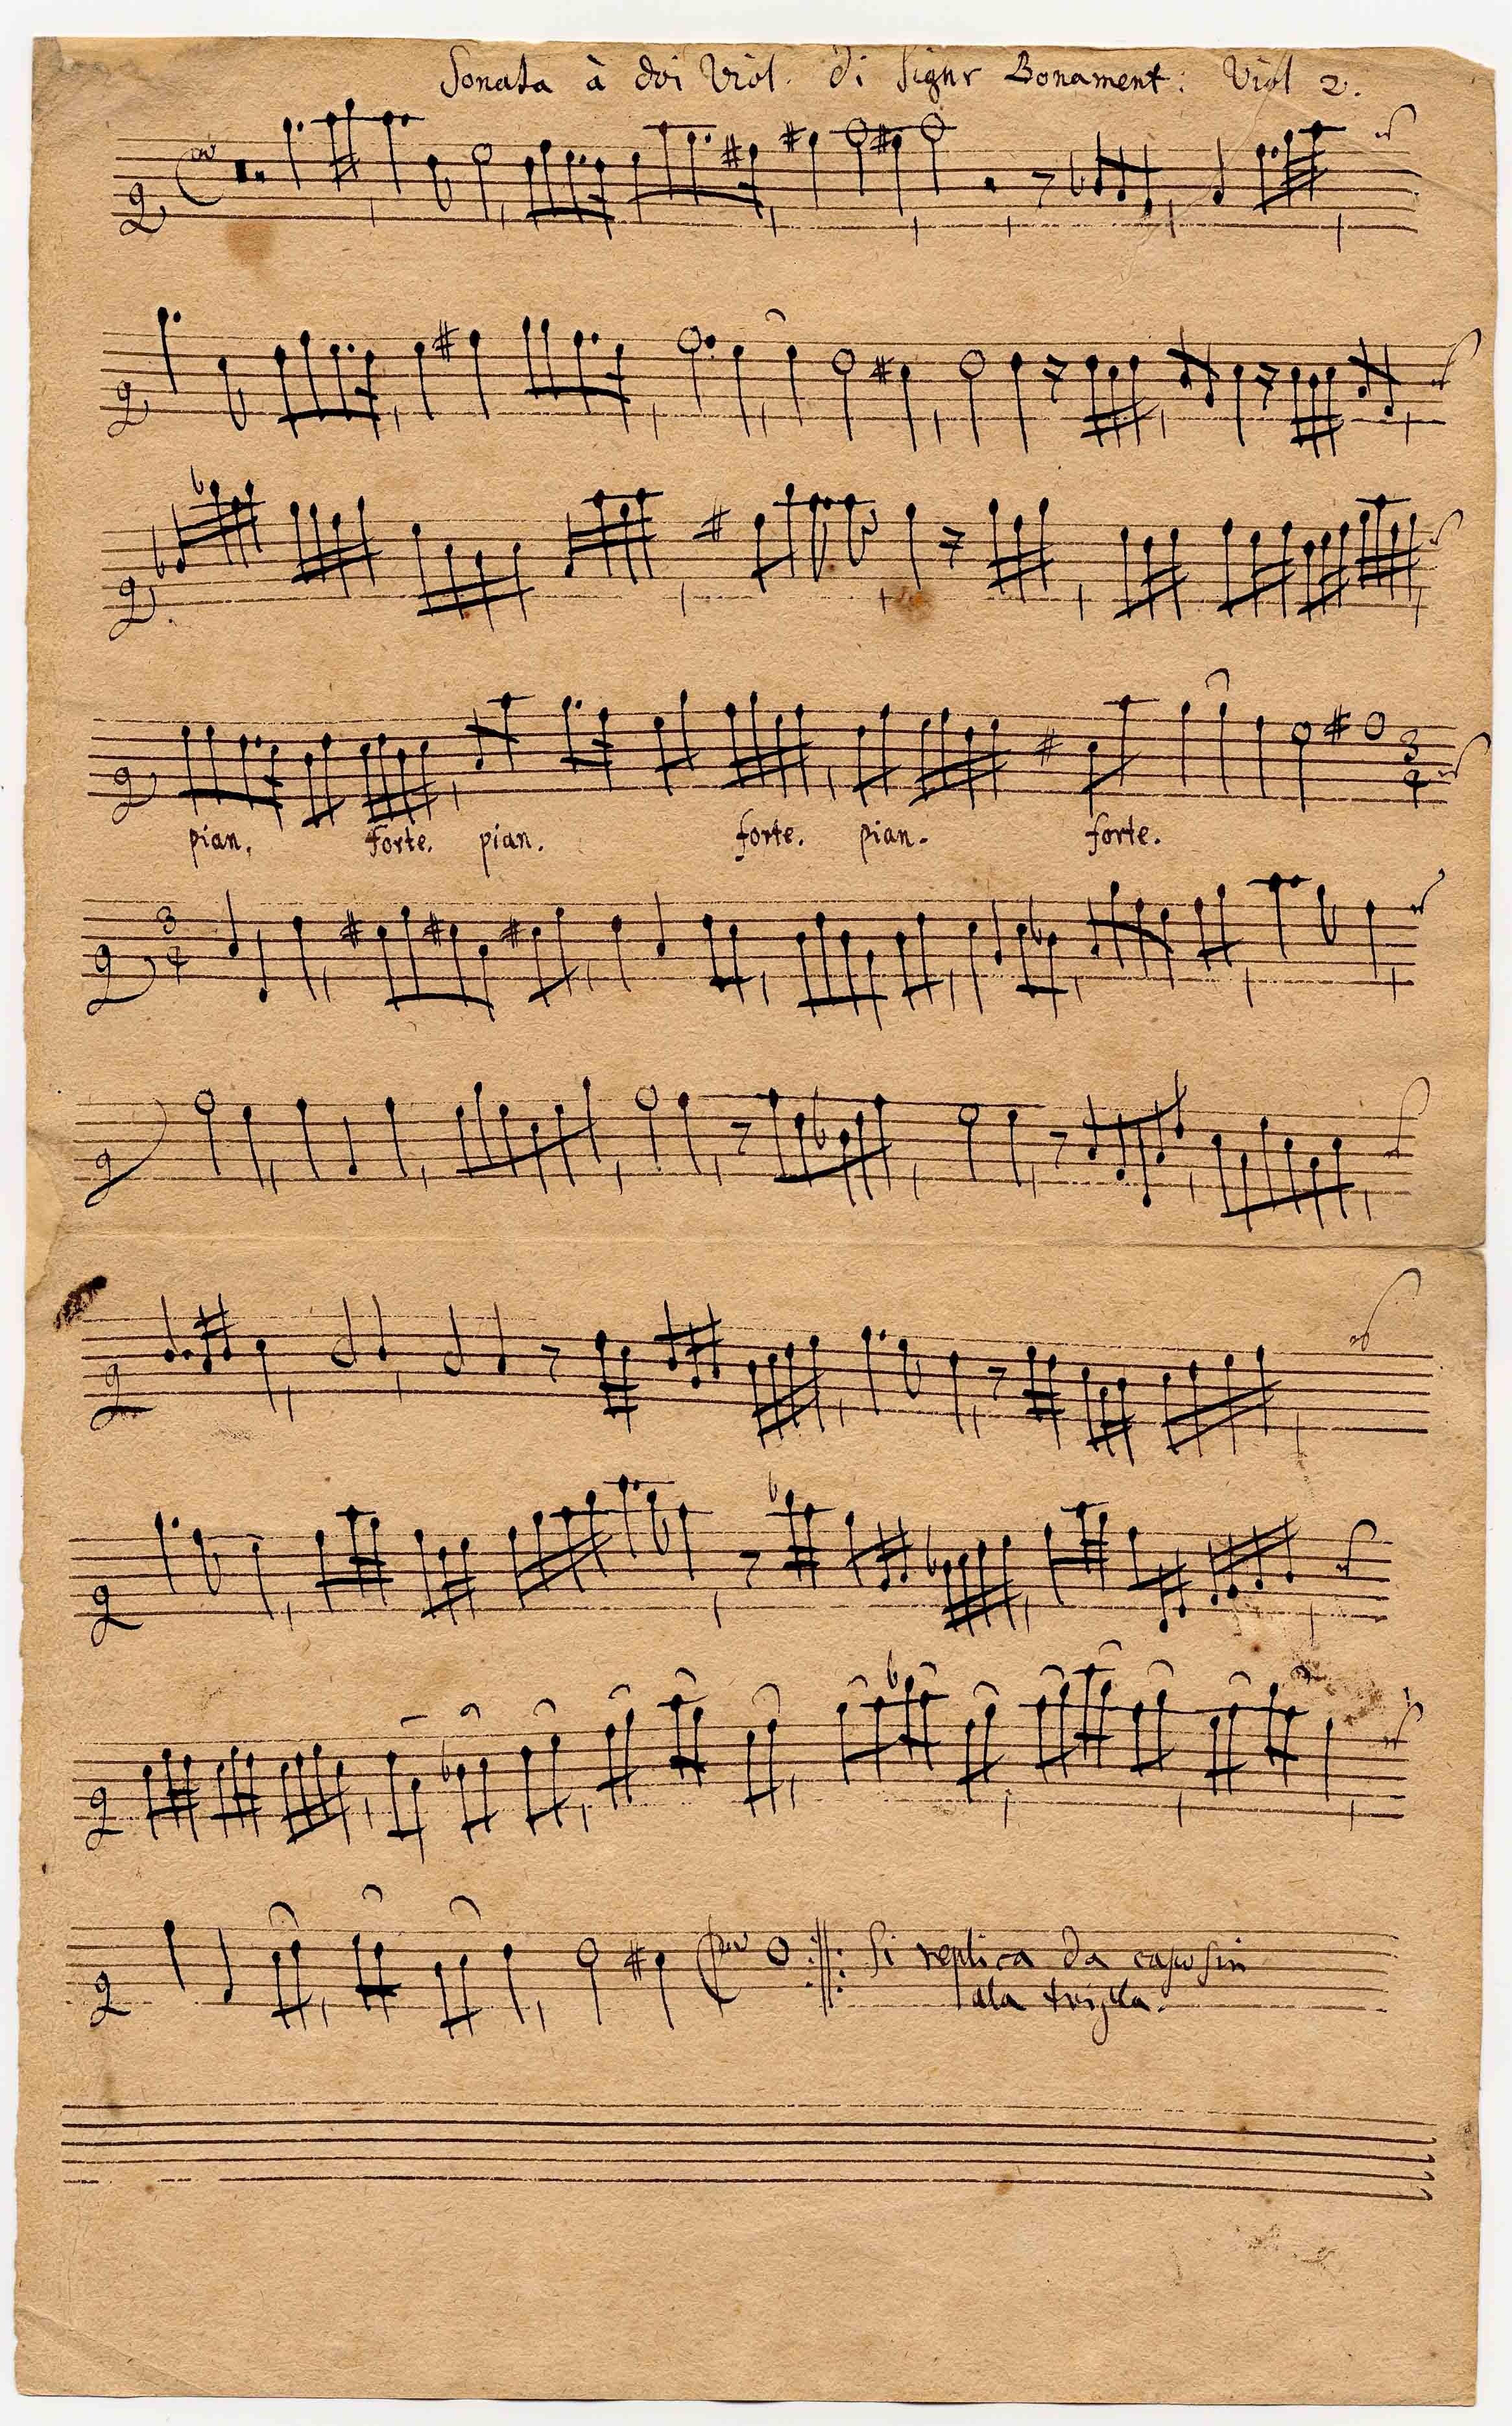 Sonata à doi Viol. di Signr Bonament: Viol 2.
pian. forte. pian. forte. pian. forte.
3
4
3
4
Si replica da capo sin
ala tripla.